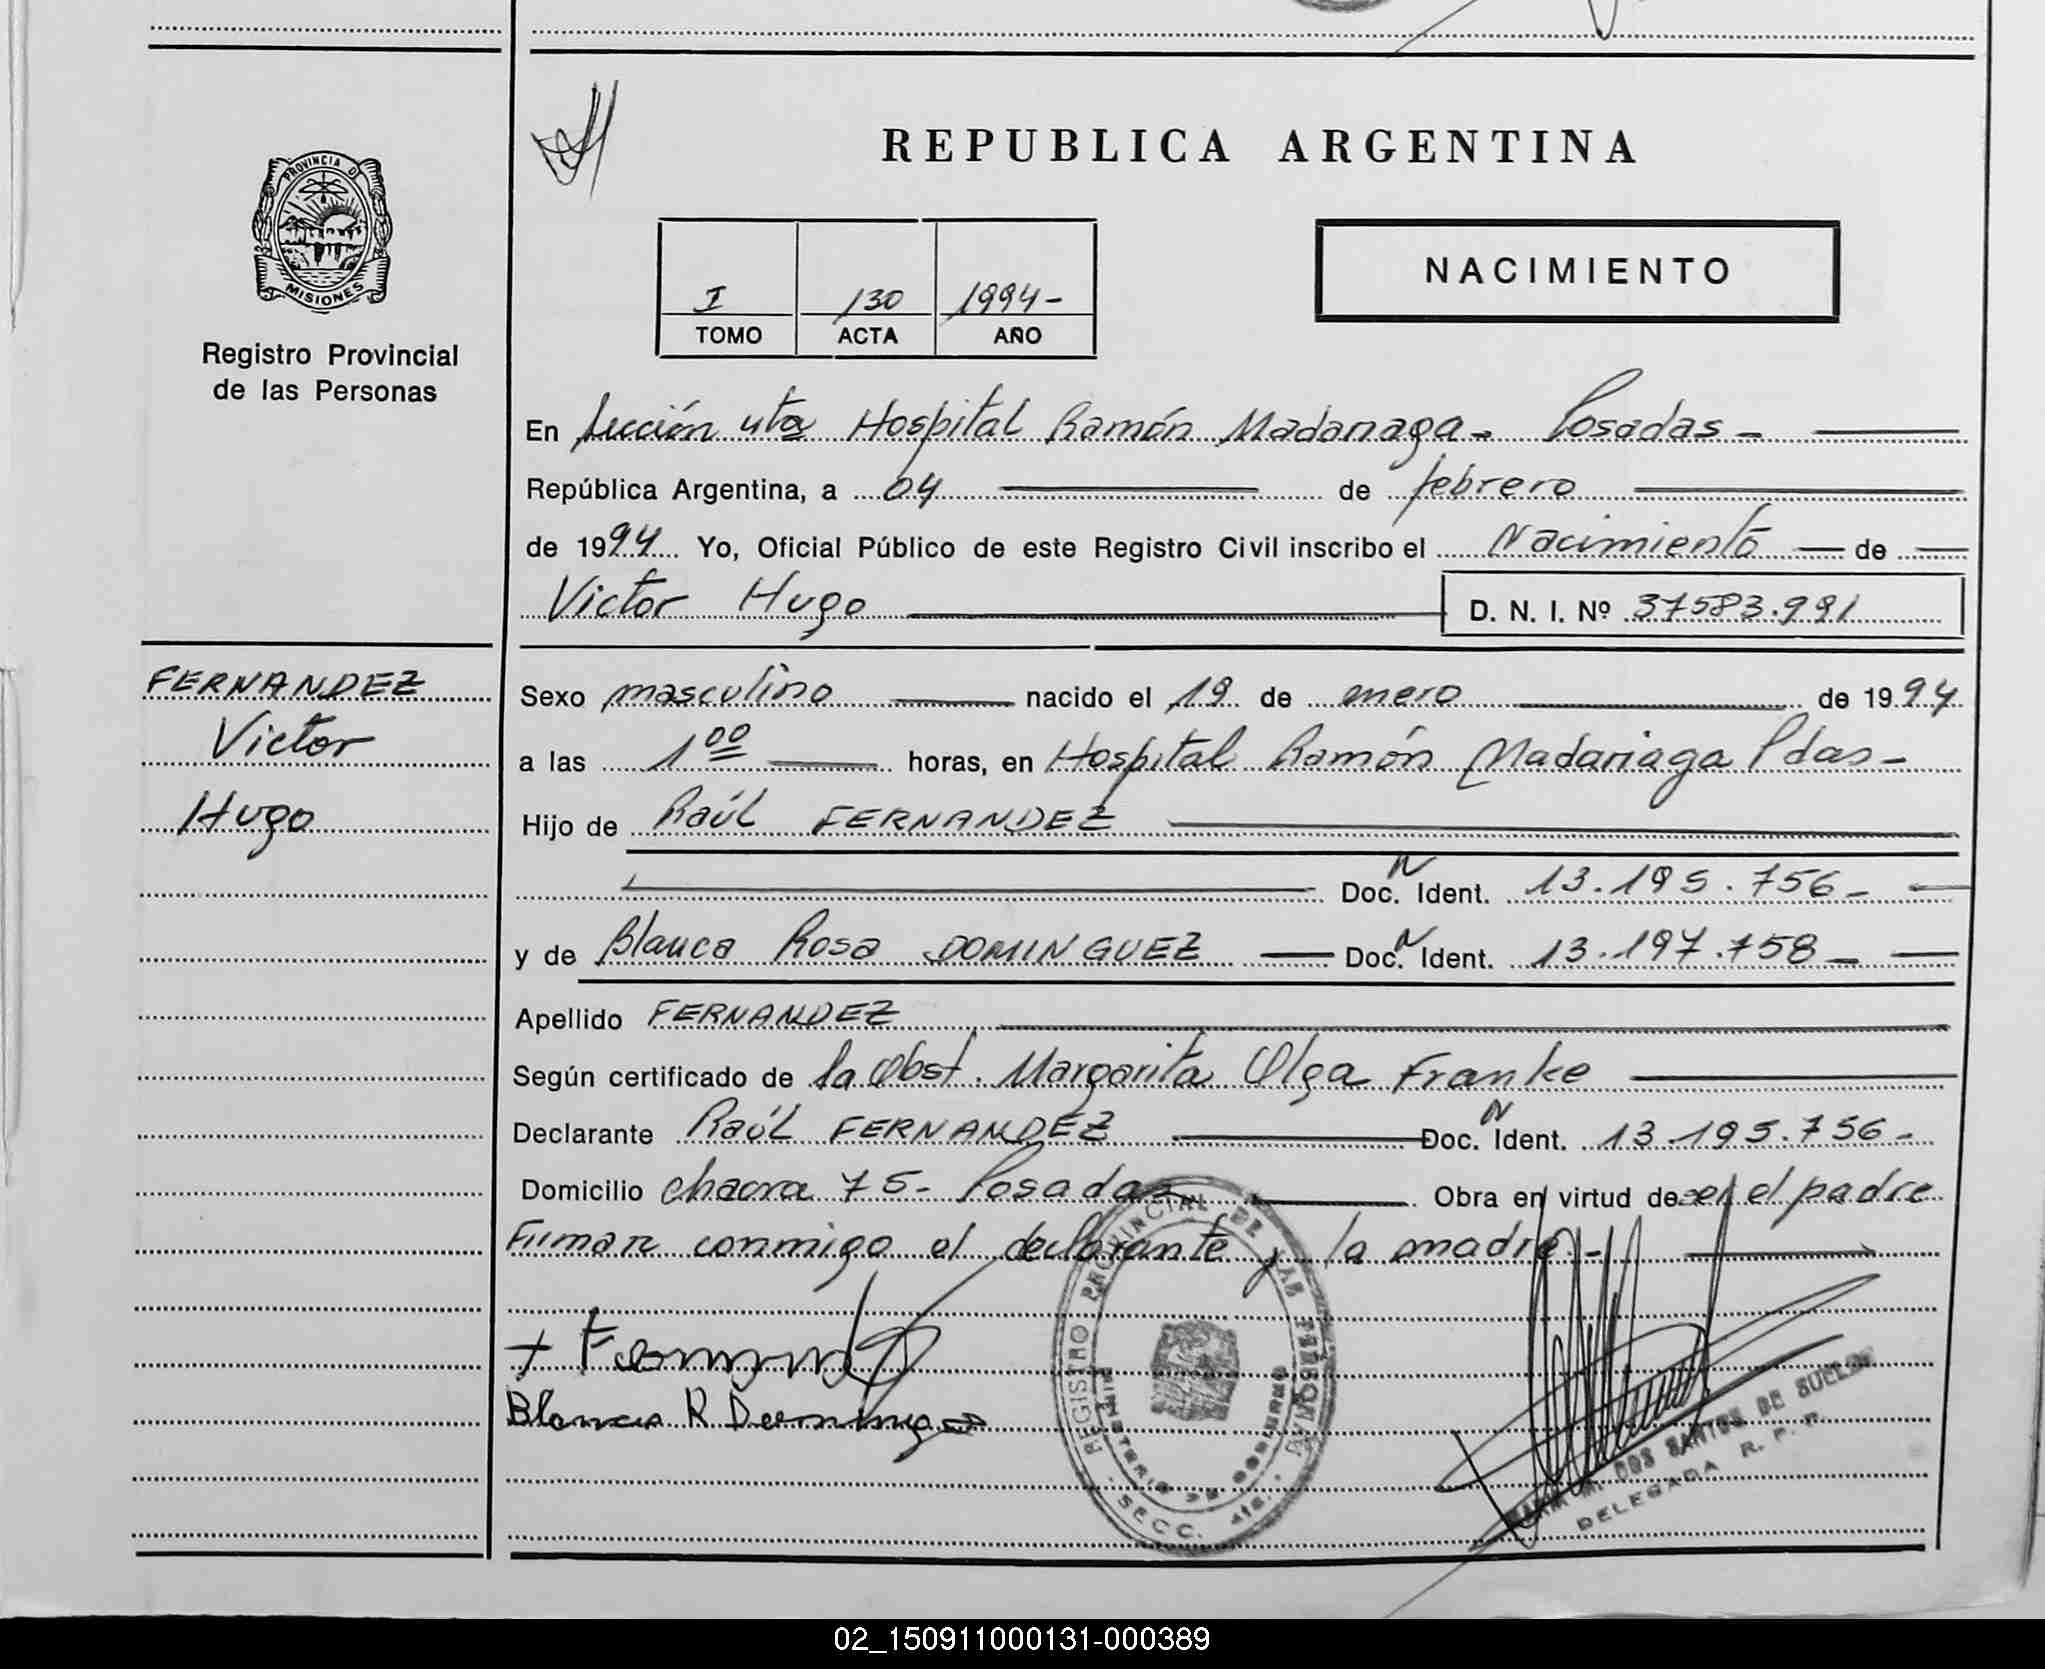 REPUBLICA ARGENTINA
PROVINCIA DE
MISIONES
Registro Provincial
de las Personas
I 130 1994-
TOMO ACTA AÑO
NACIMIENTO
En Sección 4ta Hospital Ramón Madariaga - Posadas -
República Argentina, a 04 de febrero
de 1994 Yo, Oficial Público de este Registro Civil inscribo el Nacimiento de
Victor Hugo D. N. I. Nº 37583.991
FERNANDEZ
Victor
Hugo
Sexo masculino nacido el 19 de enero de 1994
a las 1 00 horas, en Hospital Ramón Madariaga Pdas-
Hijo de Raúl FERNANDEZ
Doc. N Ident. 13.195.756-
y de Blanca Rosa DOMINGUEZ Doc. N Ident. 13.197.758-
Apellido FERNANDEZ
Según certificado de la Obst. Margarita Olga Franke
Declarante Raúl FERNANDEZ Doc. N Ident. 13.195.756-
Domicilio chacra 75- Posadas Obra en virtud de ser el padre
Firman conmigo el declarante y la madre.-
Blanca R Dominguez
REGISTRO PROVINCIAL DE LAS PERSONAS
MINISTERIO DE GOBIERNO
SECC. 4ta.
MARIA M. DOS SANTOS DE SUELDO
DELEGADA R. P. P.
02_150911000131-000389